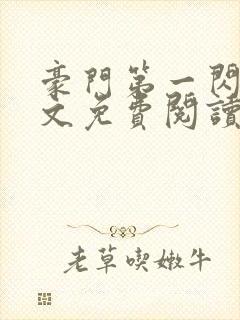 豪門第一閃
文免費閱讀
老草喫嫩牛